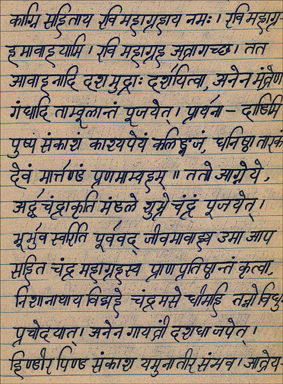 काग्नि सहिताय रवि महाग्रहाय नमः। रवि महाग्र-
हमावाहयामि। रवि महाग्रह अत्रागच्छ। तत
आवाहनादि दशमुद्राः दर्शयित्वा, अनेन मंत्रेण
गंधादि ताम्बूलान्तं पूजयेत्। प्रार्थना - दाडिमि
पुष्प संकाश काश्यपेयं कलिङ्गजं, धनिष्ठा तारकं
देवं मार्त्तण्डं प्रणमाम्यहम्॥ ततो आग्नेये,
अर्द्ध चंद्राकृति मंडले शुभ्रे चंद्रं पूजयेत्।
भूर्भुव स्वरिति पूर्ववद् जीवमावाह्य उमा आप
सहित चंद्र महाग्रहस्य प्राण प्रतिष्ठान्तं कृत्वा,
निशानाथाय विद्महे चंद्रमसे धीमहि तन्नो विधु
प्रचोदयात्। अनेन गायत्रीं दशधा जपेत्।
हिण्डीर पिण्ड संकाश यमुनातीर संभव। आत्रेय-